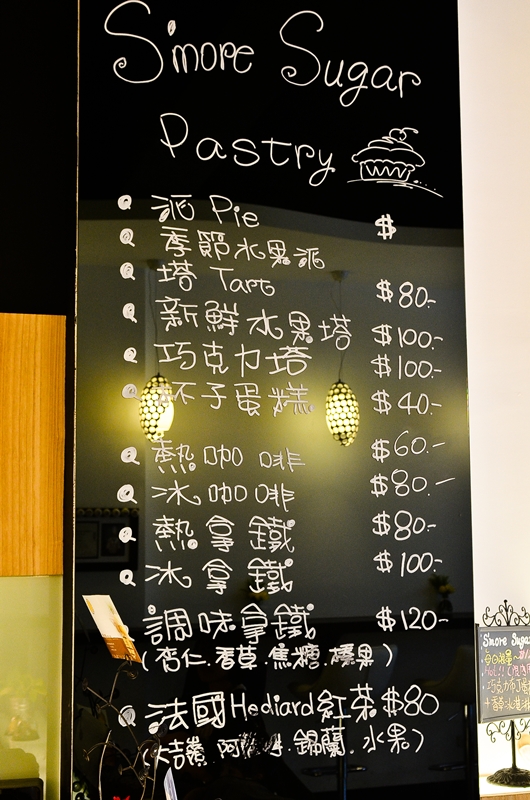 S'more Sugar
Pastry
派 Pie $
季節水果派
塔 Tart $80.-
新鮮水果塔 $100.-
巧克力塔 $100.-
杯子蛋糕 $40.-
熱咖啡 $60.-
冰咖啡 $80.-
熱拿鐵 $80.-
冰拿鐵 $100.-
調味拿鐵 $120-
(杏仁.香草.焦糖.榛果)
法國Hediard紅茶$80
(大吉嶺.阿 .錫蘭.水果)
S'more Sugar